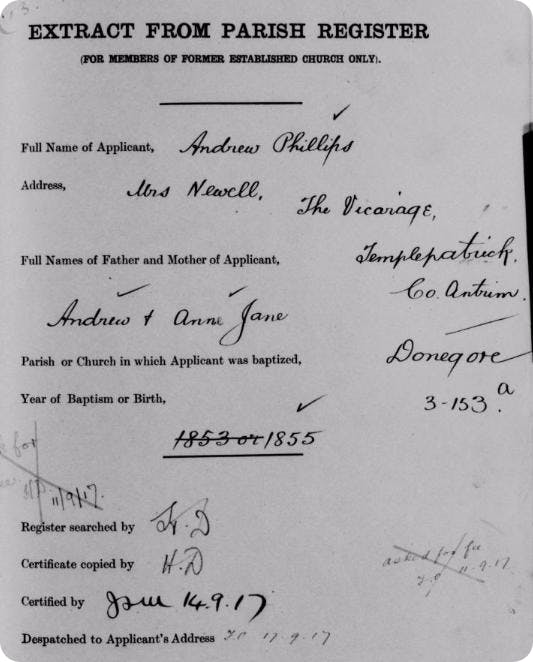 EXTRACT FROM PARISH REGISTER
(FOR MEMBERS OF FORMER ESTABLISHED CHURCH ONLY).
Full Name of Applicant, Andrew Phillips
Address, Mrs Newell,
The Vicarage,
Templepatrick.
Full Names of Father and Mother of Applicant,
Co. Antrim.
Andrew & Anne Jane
Parish or Church in which Applicant was baptized, Donegore
Year of Baptism or Birth, 3-153 a.
1853 or 1855
for
11/9/17.
Register searched by H.D
Certificate copied by H.D
asked for fee
11.9.17
Certified by 14.9.17
Despatched to Applicant's Address 17.9.17